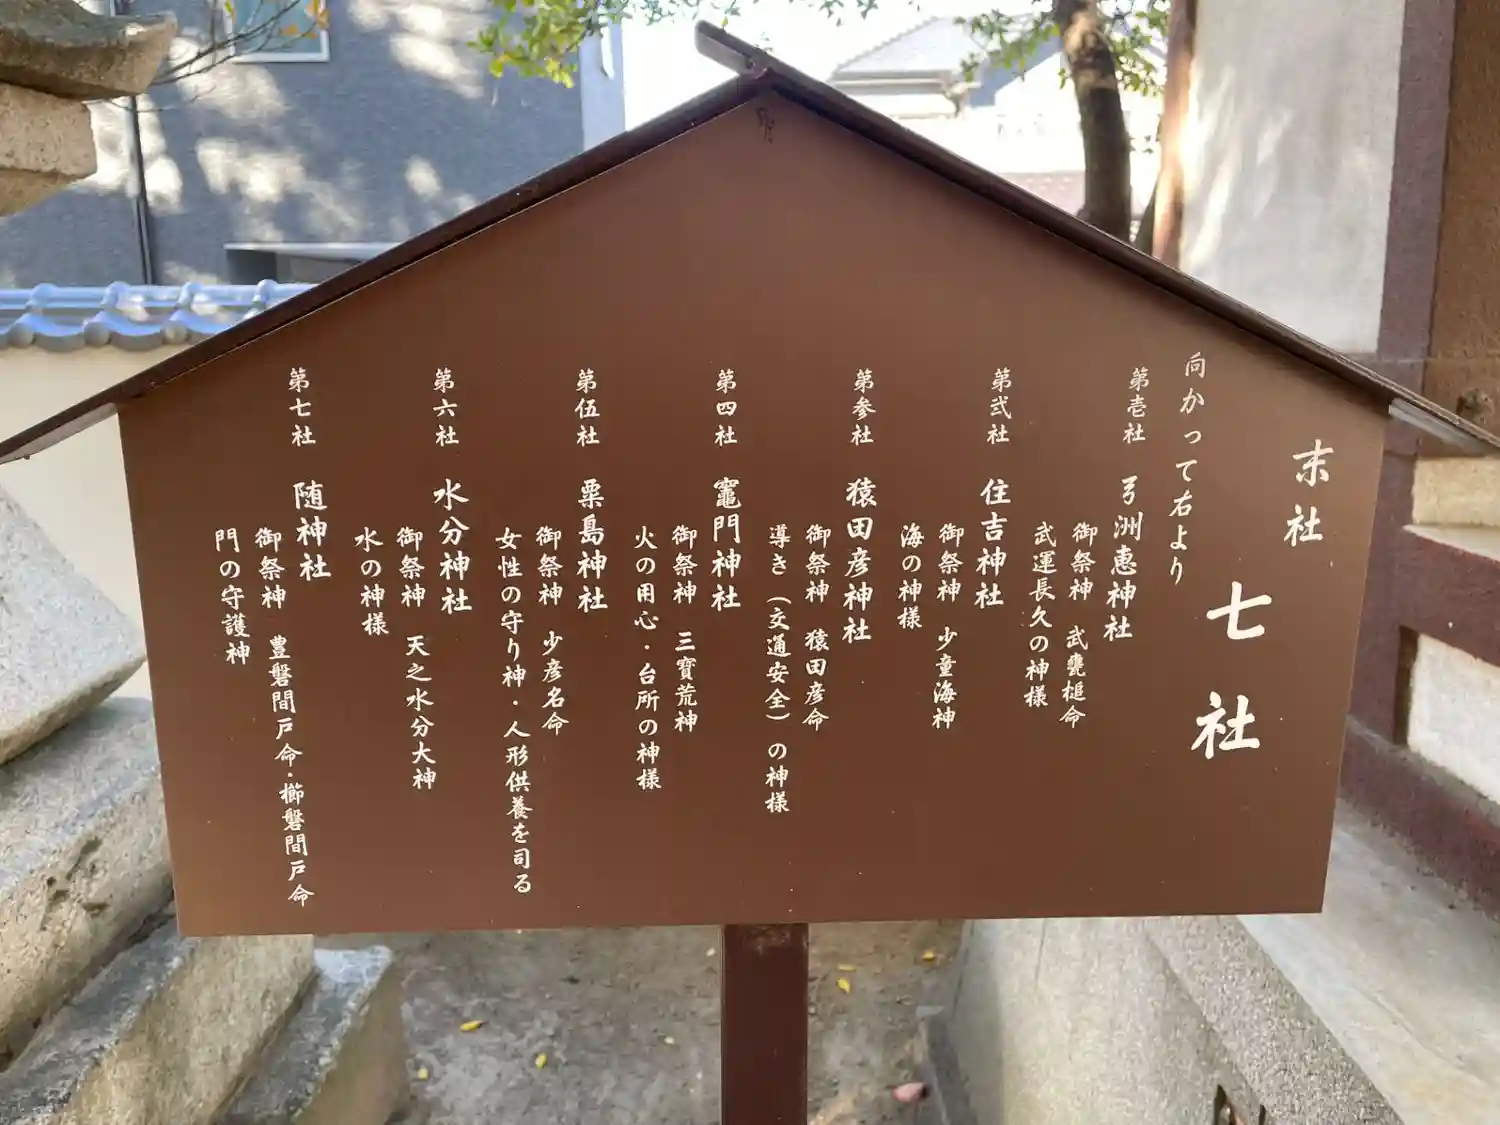 末社
七社
向かって右より
第壱社 弓洲恵神社
御祭神 武甕槌命
武運長久の神様
第弐社 住吉神社
御祭神 少童海神
海の神様
第参社 猿田彦神社
御祭神 猿田彦命
導き（交通安全）の神様
第四社 竈門神社
御祭神 三寶荒神
火の用心・台所の神様
第伍社 粟島神社
御祭神 少彦名命
女性の守り神・人形供養を司る
第六社 水分神社
御祭神 天之水分大神
水の神様
第七社 随神社
御祭神 豊磐間戸命・櫛磐間戸命
門の守護神